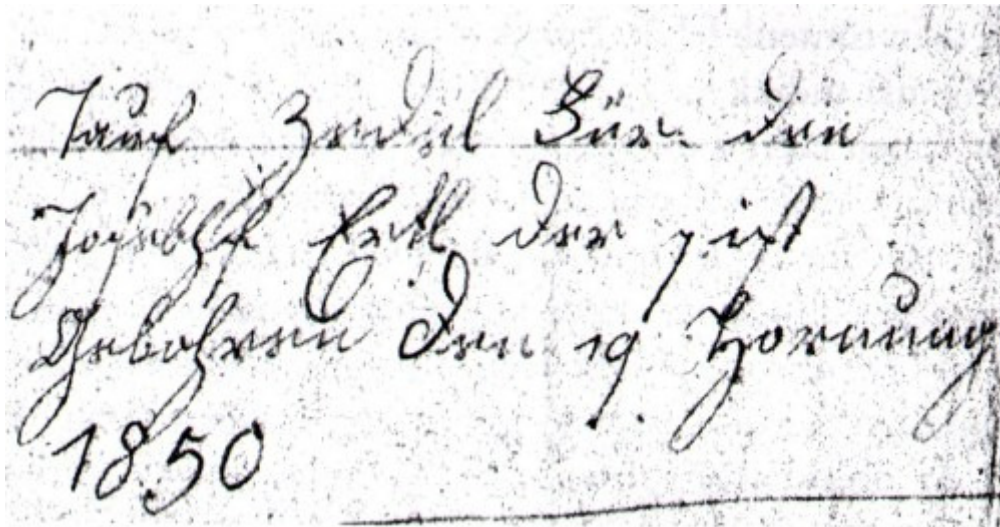 Tauf Zediel Für den
Josebhf Ertl der ist
Gebohren den 19 Hornung
1850